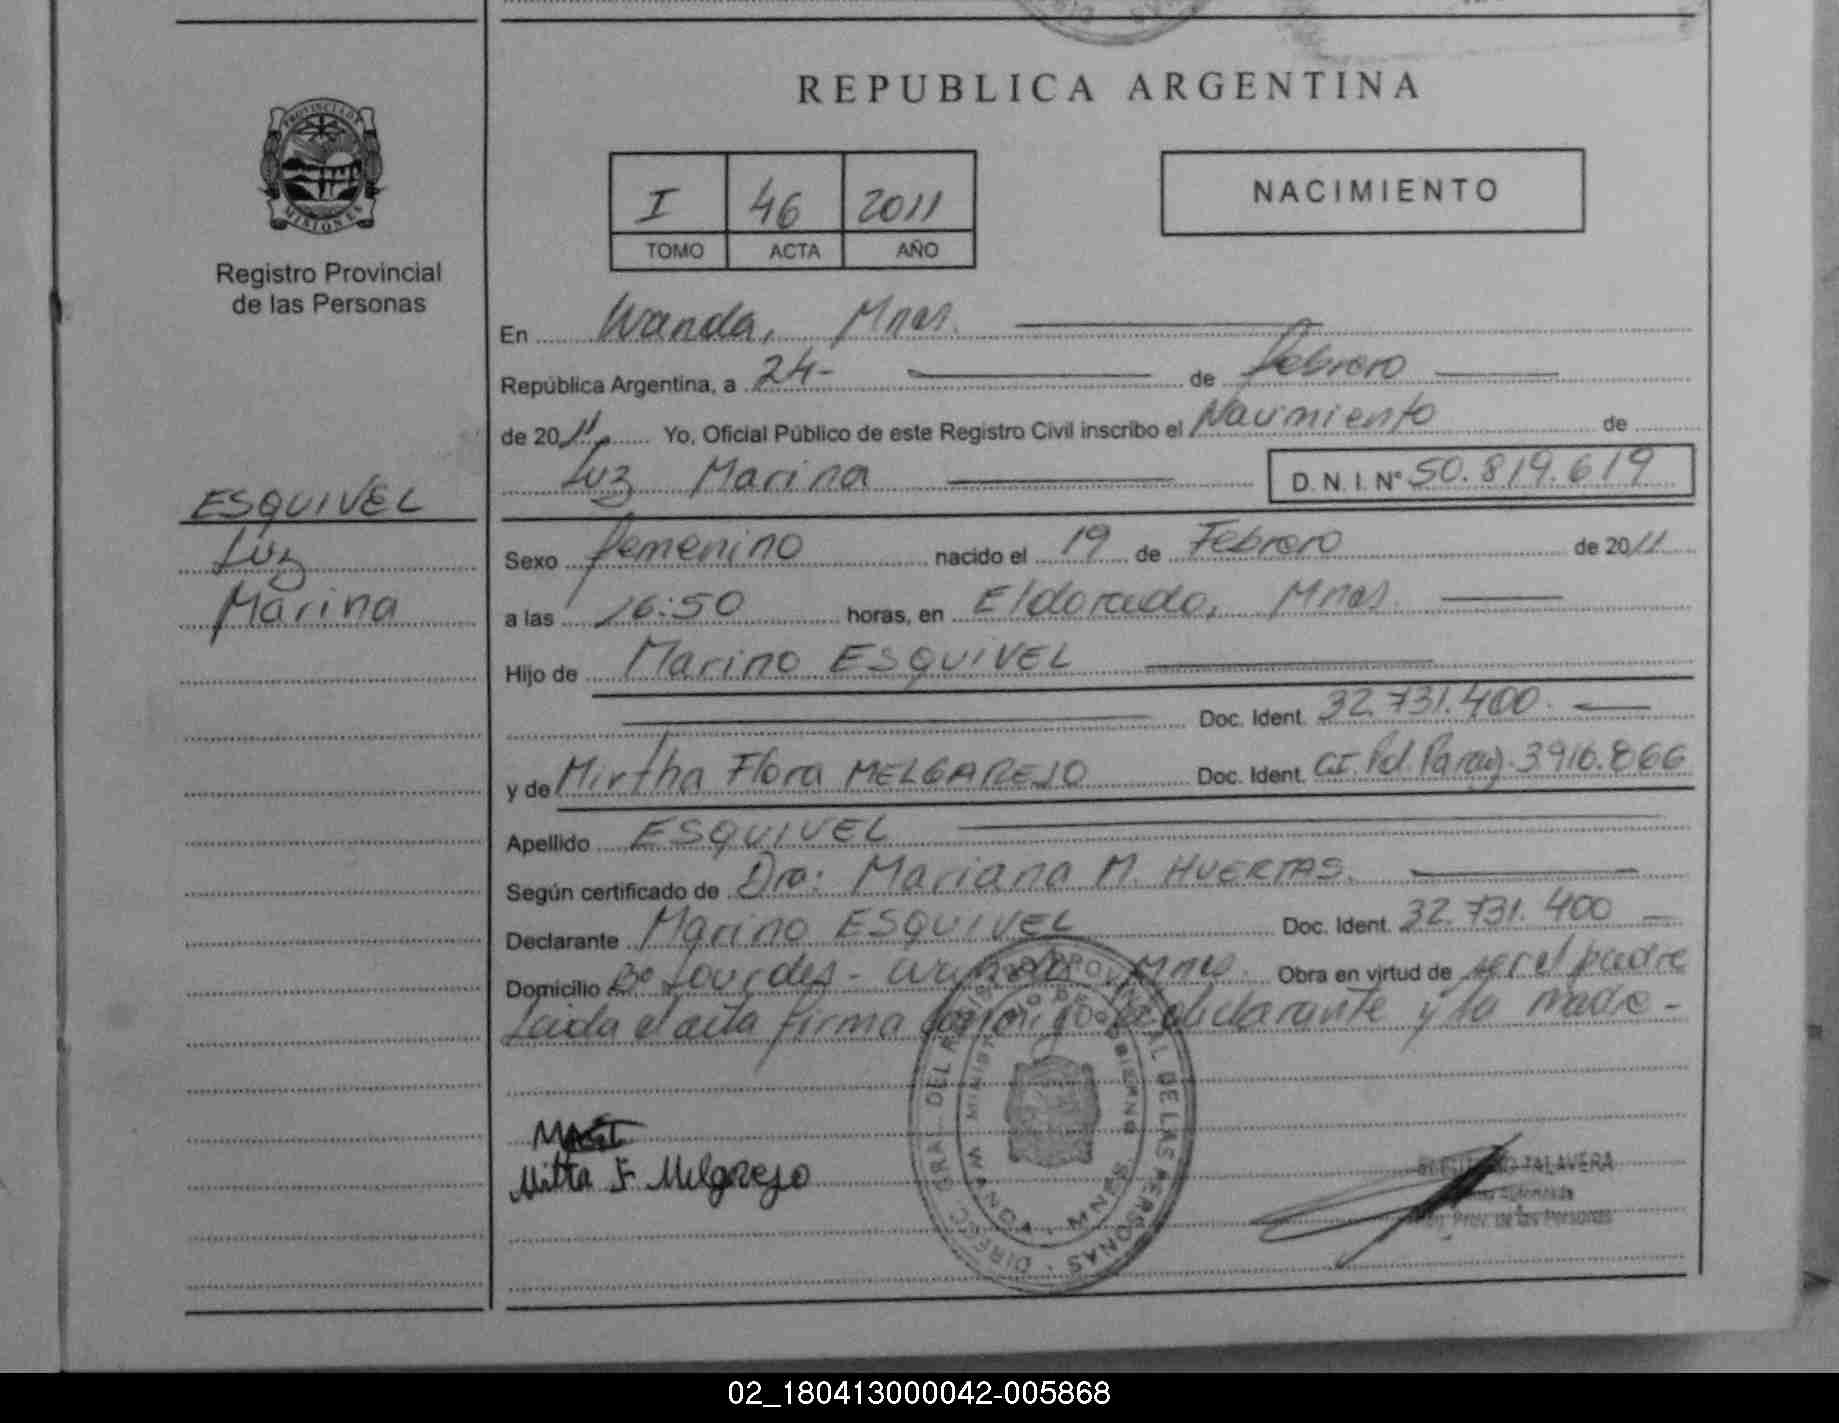 REPUBLICA ARGENTINA
PROVINCIA DE MISIONES
Registro Provincial
de las Personas
I 46 2011
TOMO ACTA AÑO
NACIMIENTO
En Wanda, Mnes.
República Argentina, a 24- de febrero
de 2011, Yo, Oficial Público de este Registro Civil inscribo el Nacimiento de
Luz Marina D. N. I. N° 50.819.619
ESQUIVEL
Luz
Marina
Sexo femenino nacido el 19 de Febrero de 2011
a las 16:50 horas, en Eldorado, Mnes.
Hijo de Marino ESQUIVEL
Doc. Ident. 32.731.400.
y de Mirtha Flora MELGAREJO Doc. Ident. CI. Pol. Parag. 3916.866
Apellido ESQUIVEL
Según certificado de Dra: Mariana M. HUERTAS.
Declarante Marino ESQUIVEL Doc. Ident. 32.731.400
Domicilio Bº Lourdes - Wanda Mnes. Obra en virtud de ser el padre
Leida el acta firma conmigo el declarante y la madre -
DIREC. GRAL. DEL REGISTRO PROVINCIAL DE LAS PERSONAS
MINISTERIO DE GOBIERNO
WANDA - MNES.
Mirta F Melgarejo
TALAVERA
Reg. Prov. de las Personas
02_180413000042-005868